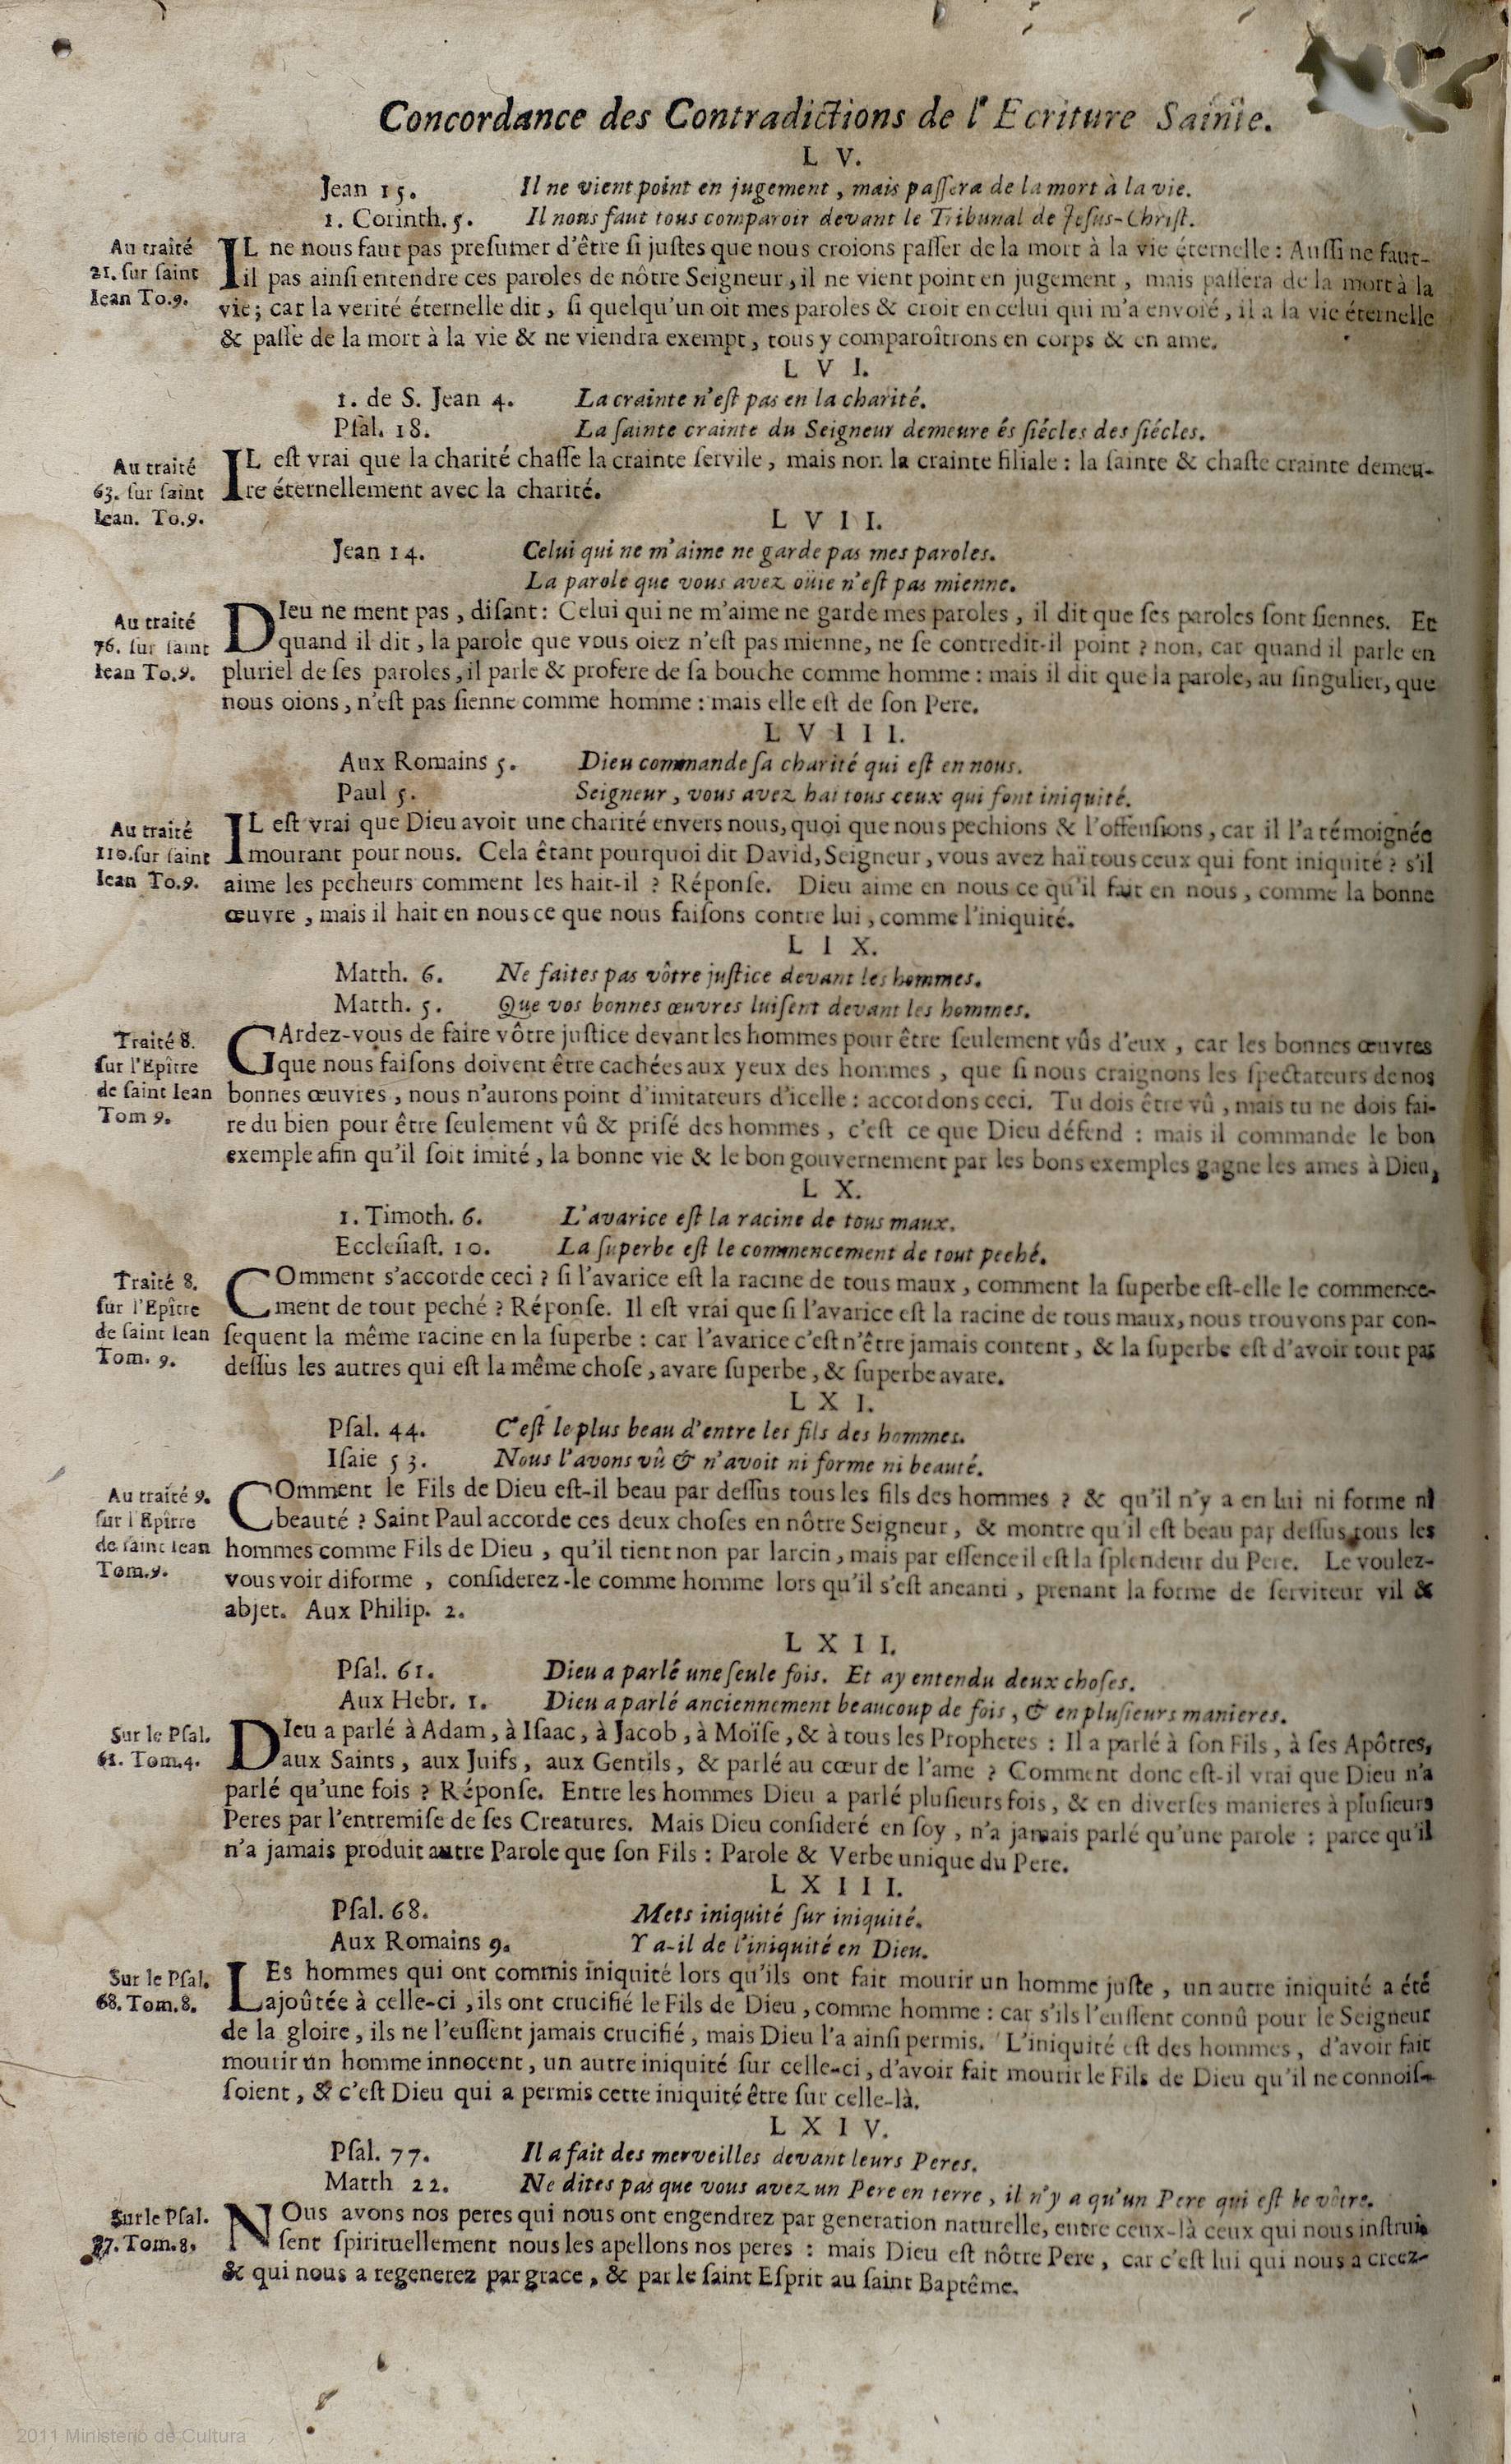 Concordance des Contradictions de l'Ecriture Sainte.
L V.
Jean 15. Il ne vient point en jugement, mais paſſera de la mort à la vie.
1. Corinth. 5. Il nous faut tous comparoir devant le Tribunal de Jeſus-Chriſt.
Au traité
21. ſur ſaint
Iean To.9.
IL ne nous faut pas preſumer d'être ſi juſtes que nous croions paſſer de la mort à la vie éternelle: Auſſi ne faut-
il pas ainſi entendre ces paroles de nôtre Seigneur, il ne vient point en jugement, mais paſſera de la mort à la
vie; car la verité éternelle dit, ſi quelqu'un oit mes paroles & croit en celui qui m'a envoié, il a la vie éternelle
& paſſe de la mort à la vie & ne viendra exempt, tous y comparoîtrons en corps & en ame.
L V I.
1. de S. Jean 4. La crainte n'eſt pas en la charité.
Pſal. 18. La ſainte crainte du Seigneur demeure és ſiécles des ſiécles.
Au traité
63. ſur ſaint
Iean. To.9.
IL eſt vrai que la charité chaſſe la crainte ſervile, mais non la crainte filiale: la ſainte & chaſte crainte demeu-
re éternellement avec la charité.
L V I I.
Jean 14. Celui qui ne m'aime ne garde pas mes paroles.
La parole que vous avez oüie n'eſt pas mienne.
Au traité
76. ſur ſaint
Iean To.9.
DIeu ne ment pas, diſant: Celui qui ne m'aime ne garde mes paroles, il dit que ſes paroles ſont ſiennes. Et
quand il dit, la parole que vous oiez n'eſt pas mienne, ne ſe contredit-il point ? non, car quand il parle en
pluriel de ſes paroles, il parle & profere de ſa bouche comme homme: mais il dit que la parole, au ſingulier, que
nous oions, n'eſt pas ſienne comme homme: mais elle eſt de ſon Pere.
L V I I I.
Aux Romains 5. Dieu commande ſa charité qui eſt en nous.
Paul 5. Seigneur, vous avez haï tous ceux qui font iniquité.
Au traité
110. ſur ſaint
Iean To.9.
IL eſt vrai que Dieu avoit une charité envers nous, quoi que nous pechions & l'offenſions, car il l'a témoignée
mourant pour nous. Cela êtant pourquoi dit David, Seigneur, vous avez haï tous ceux qui font iniquité ? s'il
aime les pecheurs comment les hait-il ? Réponſe. Dieu aime en nous ce qu'il fait en nous, comme la bonne
œuvre, mais il hait en nous ce que nous faiſons contre lui, comme l'iniquité.
L I X.
Matth. 6. Ne faites pas vôtre juſtice devant les hommes.
Matth. 5. Que vos bonnes œuvres luiſent devant les hommes.
Traité 8.
ſur l'Epître
de ſaint Iean
Tom 9.
GArdez-vous de faire vôtre juſtice devant les hommes pour être ſeulement vûs d'eux, car les bonnes œuvres
que nous faiſons doivent être cachées aux yeux des hommes, que ſi nous craignons les ſpectateurs de nos
bonnes œuvres, nous n'aurons point d'imitateurs d'icelle: accordons ceci. Tu dois être vû, mais tu ne dois fai-
re du bien pour être ſeulement vû & priſé des hommes, c'eſt ce que Dieu défend: mais il commande le bon
exemple afin qu'il ſoit imité, la bonne vie & le bon gouvernement par les bons exemples gagne les ames à Dieu,
L X.
1. Timoth. 6. L'avarice eſt la racine de tous maux.
Eccleſiaſt. 10. La ſuperbe eſt le commencement de tout peché.
Traité 8.
ſur l'Epître
de ſaint Iean
Tom. 9.
COmment s'accorde ceci ? ſi l'avarice eſt la racine de tous maux, comment la ſuperbe eſt-elle le commence-
ment de tout peché ? Réponſe. Il eſt vrai que ſi l'avarice eſt la racine de tous maux, nous trouvons par con-
ſequent la même racine en la ſuperbe: car l'avarice c'eſt n'être jamais content, & la ſuperbe eſt d'avoir tout par
deſſus les autres qui eſt la même choſe, avare ſuperbe, & ſuperbe avare.
L X I.
Pſal. 44. C'eſt le plus beau d'entre les fils des hommes.
Iſaie 53. Nous l'avons vû & n'avoit ni forme ni beauté.
Au traité 9.
ſur l'Epître
de ſaint Iean
Tom.9.
COmment le Fils de Dieu eſt-il beau par deſſus tous les fils des hommes ? & qu'il n'y a en lui ni forme ni
beauté ? Saint Paul accorde ces deux choſes en nôtre Seigneur, & montre qu'il eſt beau par deſſus tous les
hommes comme Fils de Dieu, qu'il tient non par larcin, mais par eſſence il eſt la ſplendeur du Pere. Le voulez-
vous voir diforme, conſiderez-le comme homme lors qu'il s'eſt aneanti, prenant la forme de ſerviteur vil &
abjet. Aux Philip. 2.
L X I I.
Pſal. 61. Dieu a parlé une ſeule fois. Et ay entendu deux choſes.
Aux Hebr. 1. Dieu a parlé anciennement beaucoup de fois, & en pluſieurs manieres.
Sur le Pſal.
61. Tom.4.
DIeu a parlé à Adam, à Iſaac, à Jacob, à Moïſe, & à tous les Prophetes: Il a parlé à ſon Fils, à ſes Apôtres,
aux Saints, aux Juifs, aux Gentils, & parlé au cœur de l'ame ? Comment donc eſt-il vrai que Dieu n'a
parlé qu'une fois ? Réponſe. Entre les hommes Dieu a parlé pluſieurs fois, & en diverſes manieres à pluſieurs
Peres par l'entremiſe de ſes Creatures. Mais Dieu conſideré en ſoy, n'a jamais parlé qu'une parole: parce qu'il
n'a jamais produit autre Parole que ſon Fils: Parole & Verbe unique du Pere.
L X I I I.
Pſal. 68. Mets iniquité ſur iniquité.
Aux Romains 9. Y a-il de l'iniquité en Dieu.
Sur le Pſal.
68. Tom.8.
LEs hommes qui ont commis iniquité lors qu'ils ont fait mourir un homme juſte, un autre iniquité a été
ajoûtée à celle-ci, ils ont crucifié le Fils de Dieu, comme homme: car s'ils l'euſſent connû pour le Seigneur
de la gloire, ils ne l'euſſent jamais crucifié, mais Dieu l'a ainſi permis. L'iniquité eſt des hommes, d'avoir fait
mourir un homme innocent, un autre iniquité ſur celle-ci, d'avoir fait mourir le Fils de Dieu qu'il ne connoiſ-
ſoient, & c'eſt Dieu qui a permis cette iniquité être ſur celle-là.
L X I V.
Pſal. 77. Il a fait des merveilles devant leurs Peres.
Matth 22. Ne dites pas que vous avez un Pere en terre, il n'y a qu'un Pere qui eſt le vôtre.
Sur le Pſal.
77. Tom.8.
NOus avons nos peres qui nous ont engendrez par generation naturelle, entre ceux-là ceux qui nous inſtrui
ſent ſpirituellement nous les apellons nos peres: mais Dieu eſt nôtre Pere, car c'eſt lui qui nous a creez-
& qui nous a regenerez par grace, & par le ſaint Eſprit au ſaint Baptême.
2011 Ministerio de Cultura